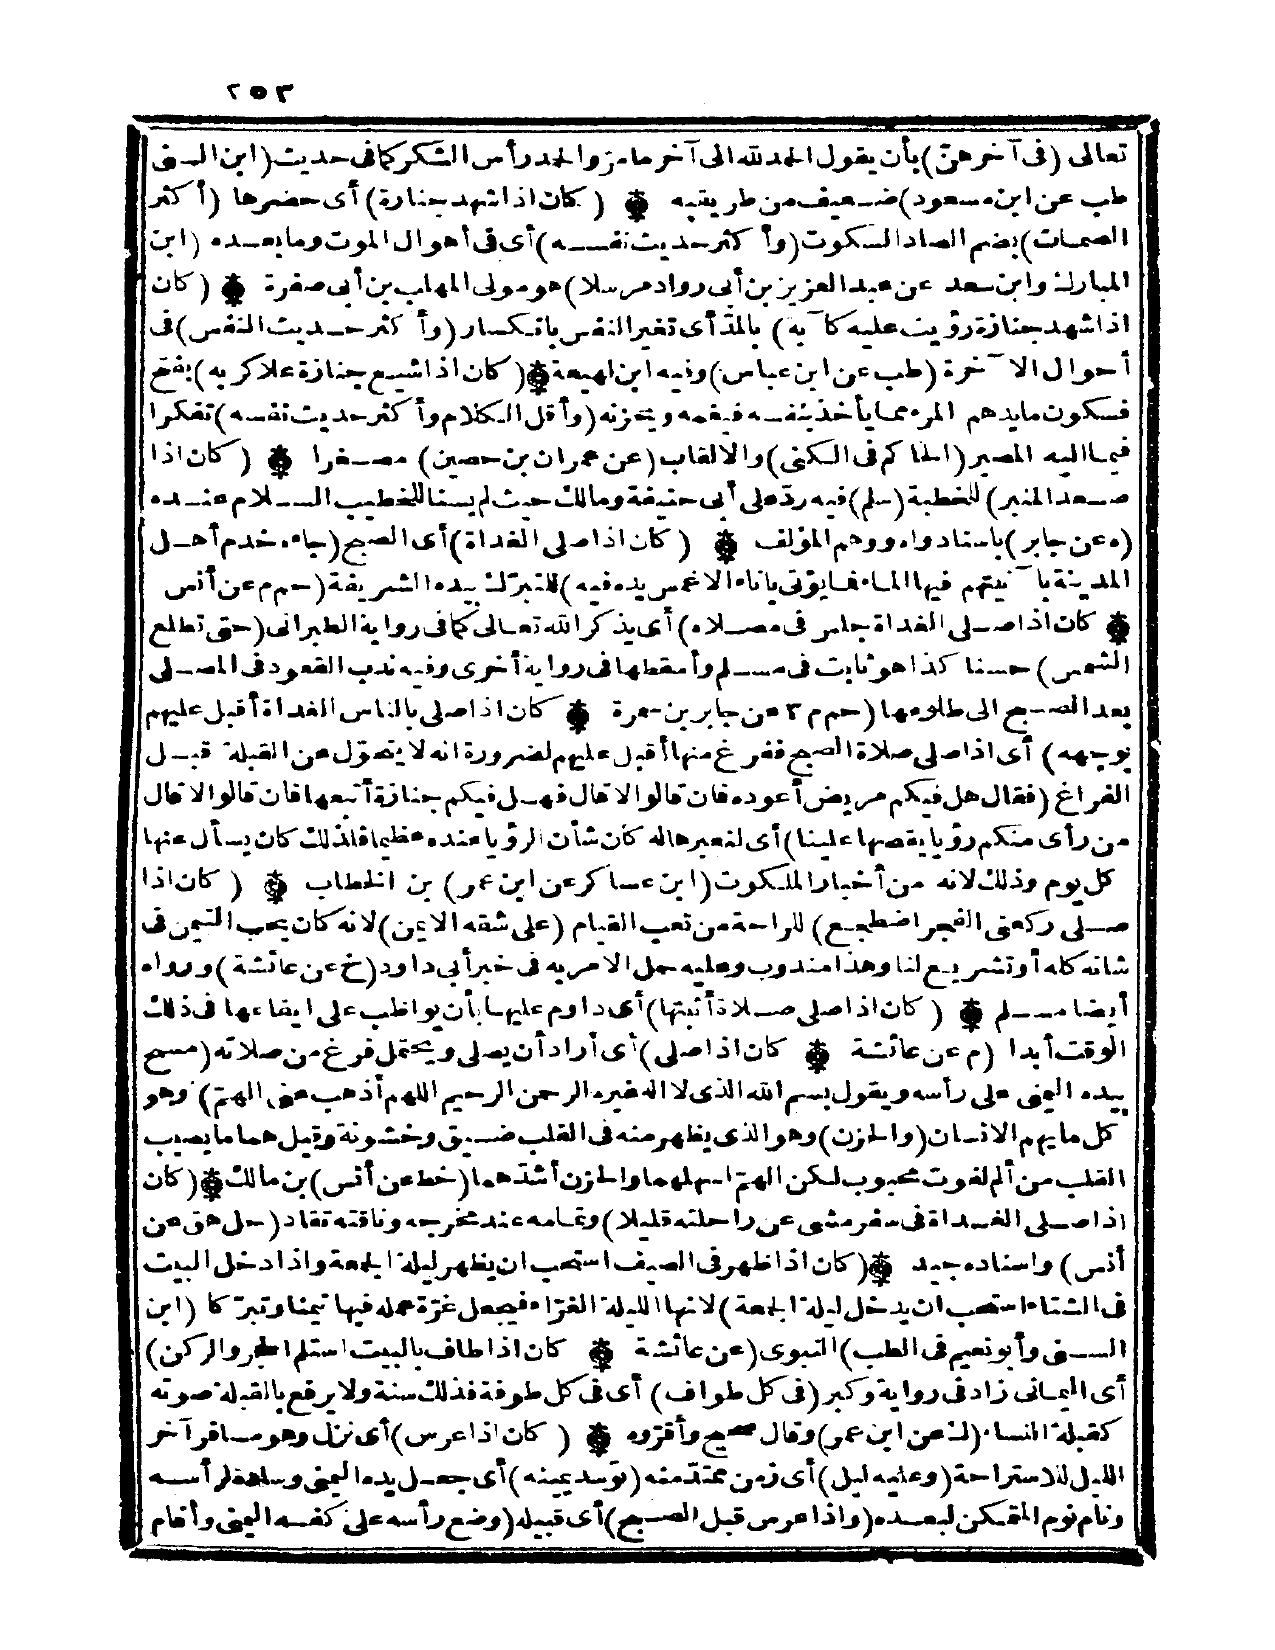 ٢٥٣
تعالى (فى آخرهن) بأن يقول الحمد لله الى آخر ما مر والحمد رأس الشكر كما فى حديث (ابن السنى
طب عن ابن مسعود) ضعيف من طريقيه ۞ (كان اذا شهد جنازة) أى حضرها (أكثر
الصمات) بضم الصاد السكوت (وأكثر حديث نفسه) أى فى أهوال الموت وما بعده (ابن
المبارك وابن سعد عن عبد العزيز بن أبى رواد مرسلا) هو مولى المهلب بن أبى صفرة ۞ (كان
اذا شهد جنازة رؤيت عليه كآبة) بالمد أى تغير النفس بانكسار (وأكثر حديث النفس) فى
أحوال الآخرة (طب عن ابن عباس) وفيه ابن لهيعة ۞ (كان اذا شيع جنازة علا كربه) بفتح
فسكون ما يدهم المرء مما يأخذ بنفسه فيغمه ويحزنه (وأقل الكلام وأكثر حديث نفسه) تفكرا
فيما اليه المصير (الحاكم فى الكنى) والالقاب (عن عمران بن حصين) مصغرا ۞ (كان اذا
صعد المنبر) للخطبة (سلم) فيه رد على أبى حنيفة ومالك حيث لم يسنا للخطيب السلام عنده
(ه عن جابر) باسناد واه ووهم المؤلف ۞ (كان اذا صلى الغداة) أى الصبح (جاءه خدم أهل
المدينة بآنيتهم فيها الماء فما يؤتى باناء الا غمس يده فيه) للتبرك بيده الشريفة (حم م عن أنس
۞ كان اذا صلى الغداة جلس فى مصلاه) أى يذكر الله تعالى كما فى رواية الطبرانى (حتى تطلع
الشمس) حسنا كذا هو ثابت فى مسلم وأسقطها فى رواية أخرى وفيه ندب القعود فى المصلى
بعد الصبح الى طلوعها (حم م ٣ عن جابر بن سمرة ۞ كان اذا صلى بالناس الغداة أقبل عليهم
بوجهه) أى اذا صلى صلاة الصبح ففرغ منها أقبل عليهم لضرورة انه لا يتحول عن القبلة قبل
الفراغ (فقال هل فيكم مريض أعوده فان قالوا لا قال فهل فيكم جنازة أتبعها فان قالوا لا قال
من رأى منكم رؤيا يقصها علينا) أى لنعبرها له كان شأن الرؤيا عنده عظيما فلذلك كان يسأل عنها
كل يوم وذلك لانه من أخبار الملكوت (ابن عساكر عن ابن عمر) بن الخطاب ۞ (كان اذا
صلى ركعتى الفجر اضطجع) للراحة من تعب القيام (على شقه الايمن) لانه كان يحب التيمن فى
شانه كله أو تشريع لنا وهذا مندوب وعليه حمل الامر به فى خبر أبى داود (خ عن عائشة) ورواه
أيضا مسلم ۞ (كان اذا صلى صلاة أثبتها) أى داوم عليها بأن يواظب على ايقاعها فى ذلك
الوقت أبدا (م عن عائشة ۞ كان اذا صلى) أى أراد أن يصلى ويحتمل فرغ من صلاته (مسح
بيده اليمنى على رأسه ويقول بسم الله الذى لا اله غيره الرحمن الرحيم اللهم أذهب عنى الهم) وهو
كل ما يهم الانسان (والحزن) وهو الذى يظهر منه فى القلب ضيق وخشونة وقيل هما ما يصيب
القلب من ألم لفوت محبوب لكن الهم اسهلهما والحزن أشدهما (خط عن أنس) بن مالك ۞ (كان
اذا صلى الغداة فى سفر مشى عن راحلته قليلا) وتمامه عند مخرجه وناقته تقاد (حل هق عن
أنس) واسناده جيد ۞ (كان اذا ظهر فى الصيف استحب ان يظهر ليلة الجمعة واذا دخل البيت
فى الشتاء استحب ان يدخل ليلة الجمعة) لانها الليلة الغراء فيجعل غرة عمله فيها تيمنا وتبركا (ابن
السنى وأبو نعيم فى الطب) النبوى (عن عائشة ۞ كان اذا طاف بالبيت استلم الحجر والركن)
أى اليمانى زاد فى رواية وكبر (فى كل طواف) أى فى كل طوفة فذلك سنة ولا يرفع بالقبلة صوته
كقبلة النساء (ك عن ابن عمر) وقال صحيح وأقروه ۞ (كان اذا عرس) أى نزل وهو مسافر آخر
الليل للاستراحة (وعليه ليل) أى زمن ممتد منه (توسد يمينه) أى جعل يده اليمنى وسادة لرأسه
ونام نوم المتمكن لبعده (واذا عرس قبل الصبح) أى قبيله (وضع رأسه على كفه اليمنى وأقام